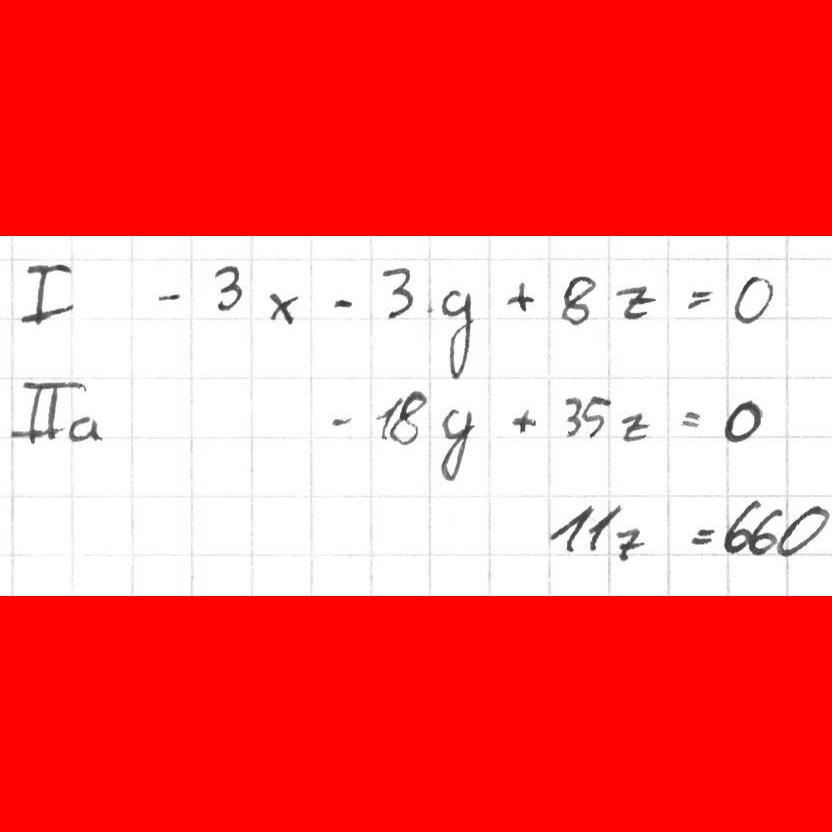 I - 3x - 3y + 8z = 0
IIa - 18y + 35z = 0
11z = 660